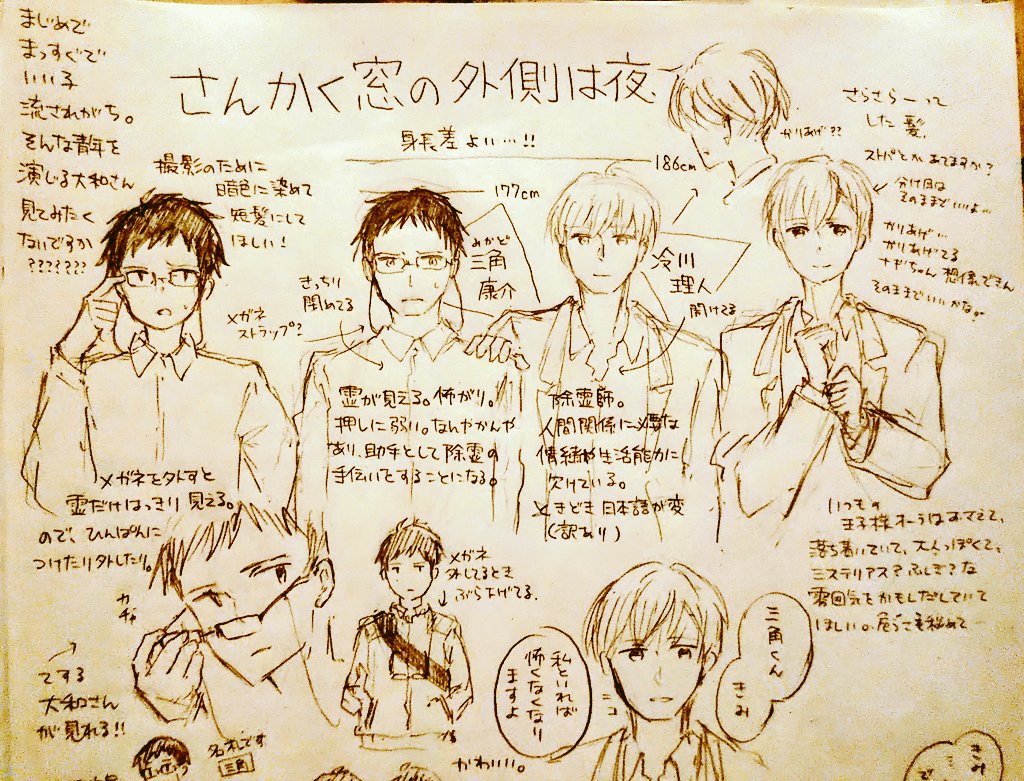 まじめで
まっすぐで
いい子
流されがち。
そんな青年を
演じる大和さん
見てみたく
ないですか
???????
さんかく窓の外側は夜
身長差よい…!!
撮影のために
暗色に染めて
短髪にして
ほしい!
177cm
186cm
かりあげ??
さらさらーって
した髪
ストパとかあてますか?
分け目は
そのままでいいよ…
かりあげ…
かりあげてる
ナギちゃん想像できん
そのままでいいかな?
きっちり
閉めてる
メガネ
ストラップ?
みかど
三角
康介
冷川
理人
開けてる
霊が見える。怖がり。
押しに弱い。なんやかんや
あり、助手として除霊の
手伝いをすることになる。
除霊師。
人間関係に必要な
情緒や生活能力に
欠けている。
ときどき日本語が変
(訳あり)
メガネを外すと
霊だけはっきり見える。
ので、ひんぱんに
つけたり外したり。
カチャ
てする
大和さん
が見れる!!
名札です
三角
メガネ
外してるとき
ぶらさげてる。
かわいい。
いつもの
王子様オーラはおさえて、
落ち着いていて、大人っぽくて、
ミステリアス?ふしぎ?な
雰囲気をかもしだしていて
ほしい。危うさを秘めて…
三角くん
きみ
私といれば
怖くなくなり
ますよ
ニコ
きみ